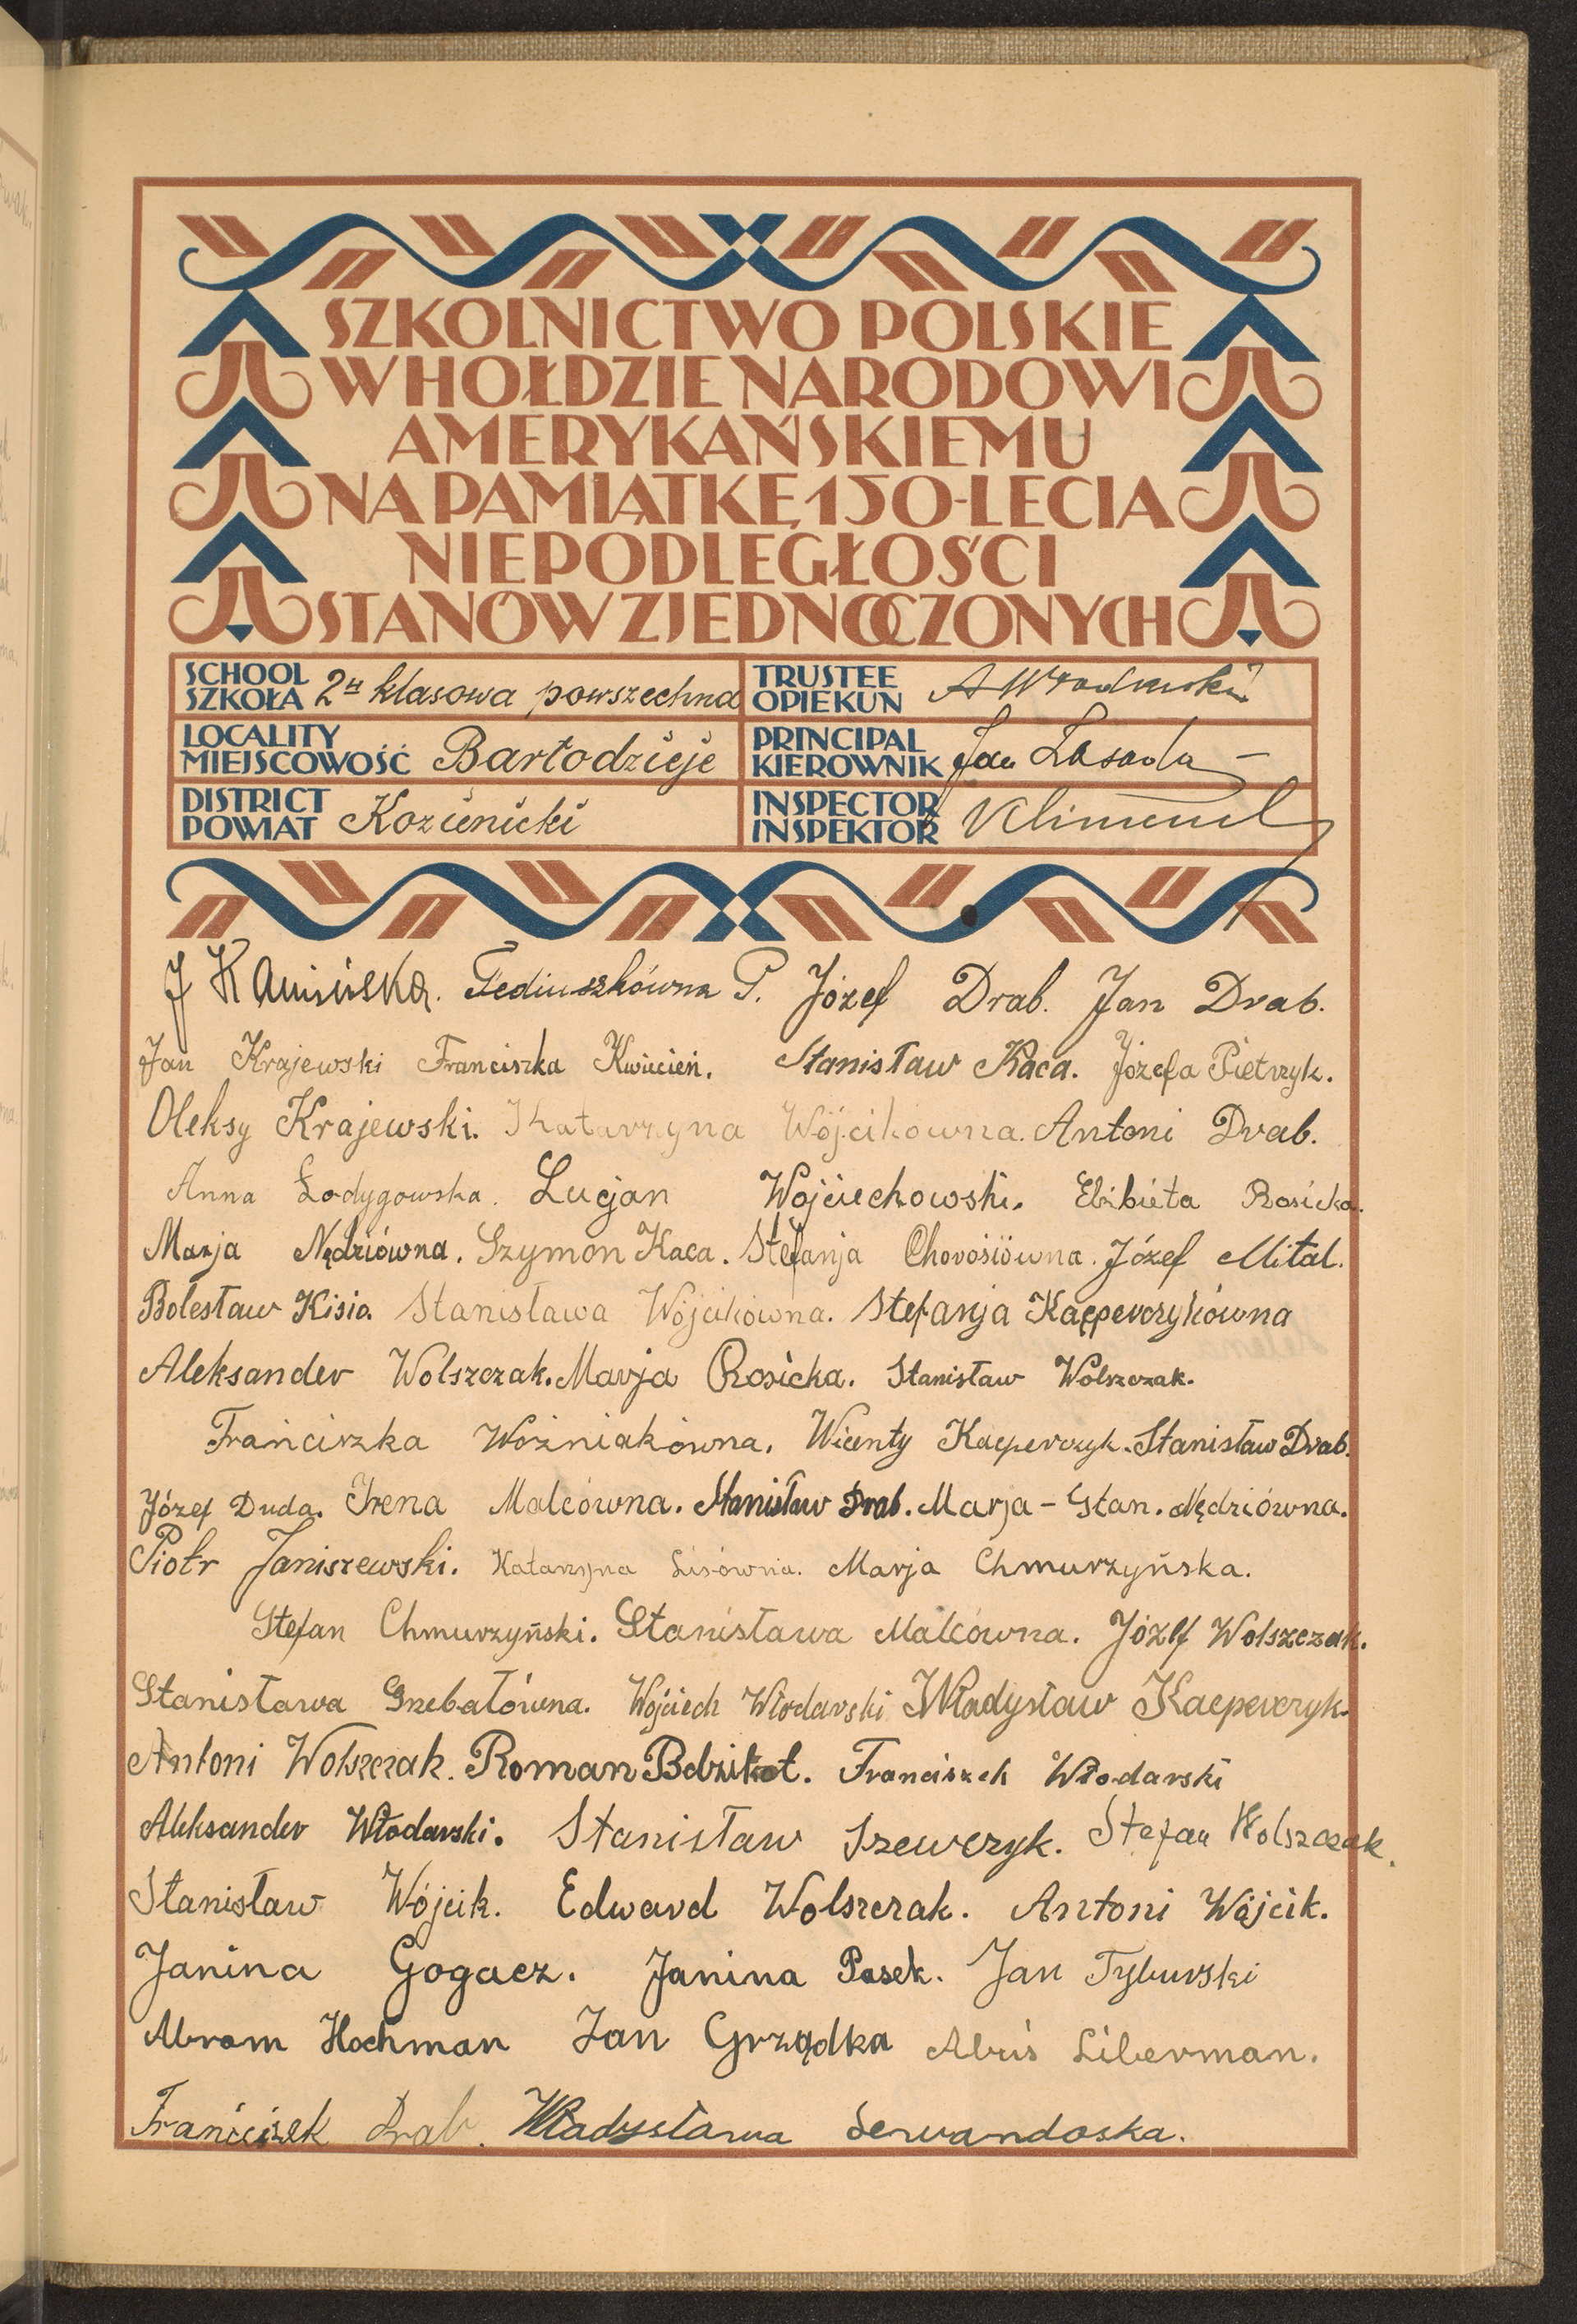 SZKOLNICTWO POLSKIE
W HOŁDZIE NARODOWI
AMERYKAŃSKIEMU
NA PAMIĄTKĘ 150-LECIA
NIEPODLEGŁOŚCI
STANÓW ZJEDNOCZONYCH
SCHOOL SZKOŁA 2u klasowa powszechna
TRUSTEE OPIEKUN
LOCALITY MIEJSCOWOŚĆ Bartodzieje
PRINCIPAL KIEROWNIK Jan Zasada
DISTRICT POWIAT Kozienicki
INSPECTOR INSPEKTOR
J Kamińska. Fediuszkówna P. Józef Drab. Jan Drab.
Jan Krajewski Franciszka Kwiecień. Stanisław Kaca. Józefa Pietrzyk.
Oleksy Krajewski. Katarzyna Wójcikówna. Antoni Drab.
Anna Łodygowska. Lucjan Wojciechowski. Elżbieta Rosicka.
Marja Nędziówna. Szymon Kaca. Stefanja Chorośiówna. Józef Mital.
Bolesław Kisio. Stanisława Wójcikówna. Stefanja Kacperczykówna
Aleksander Wolszczak. Marja Rosicka. Stanisław Wolszczak.
Franciszka Woźniakówna. Wicenty Kacperczyk. Stanisław Drab.
Józef Duda. Irena Malcówna. Stanisław Drab. Marja - Stan. Nędziówna.
Piotr Janiszewski. Katarzyna Lisówna. Marja Chmurzyńska.
Stefan Chmurzyński. Stanisława Malcówna. Józef Wolszczak.
Stanisława Grzebałówna. Wojciech Włodarski Władysław Kacperczyk.
Antoni Wolszczak. Roman Bdzikot. Franciszek Włodarski
Aleksander Włodarski. Stanisław Szewczyk. Stefan Wolszczak.
Stanisław Wójcik. Edward Wolszczak. Antoni Wójcik.
Janina Gogacz. Janina Pasek. Jan Tyburski
Abram Hochman Jan Grządka Abuś Liberman.
Franciszek Drab. Władysława Serwandoska.